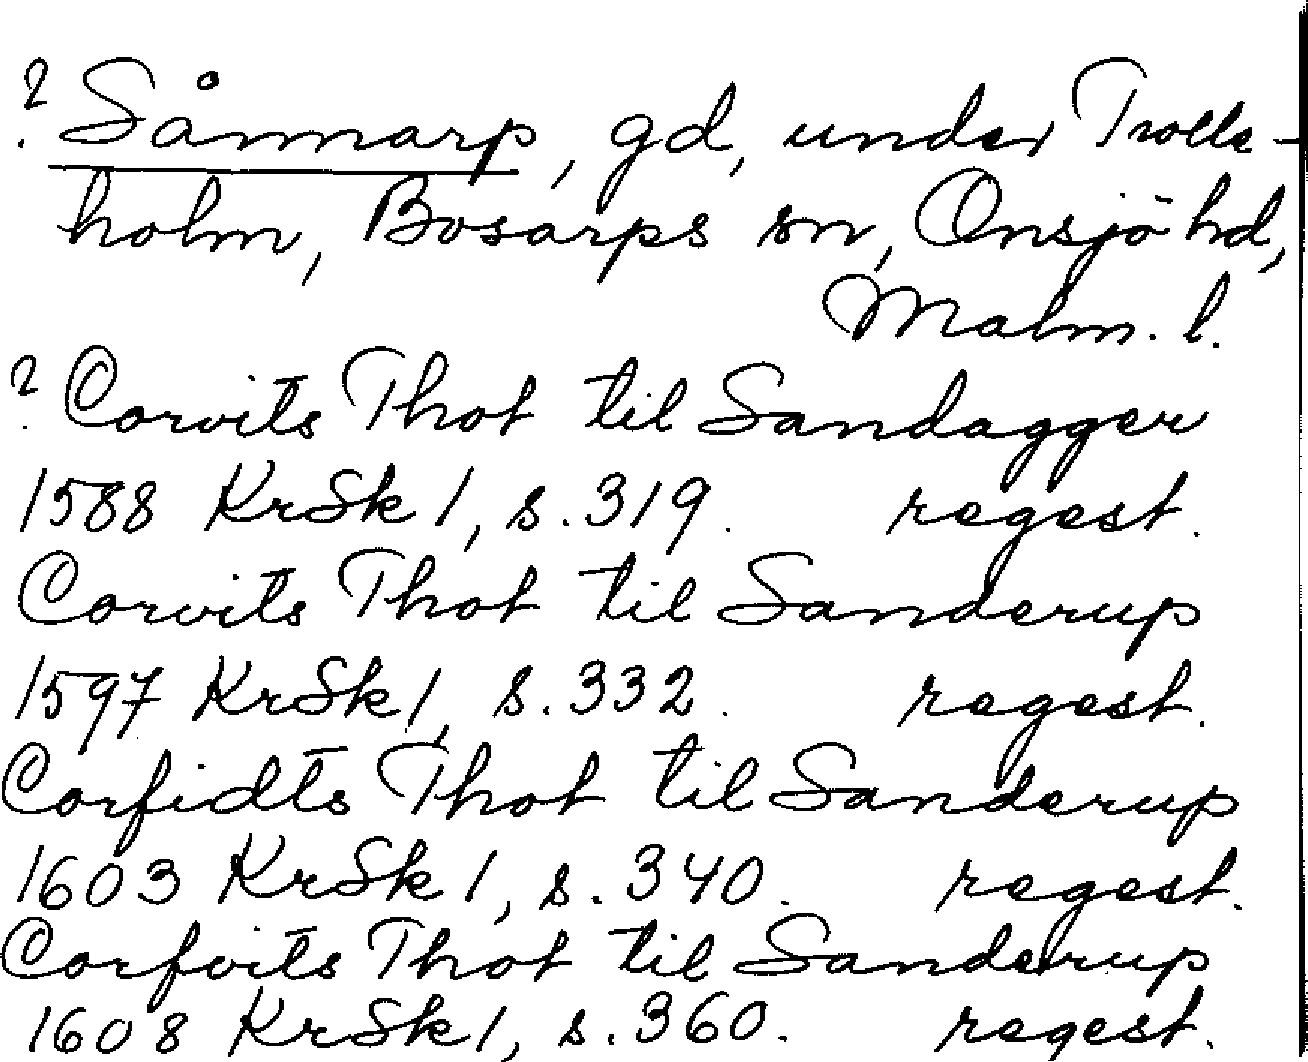 ? Sånnarp, gd, under Trolle-
holm, Bosarps sn, Onsjö hd,
Malm. l.
? Corvits Thot til Sandagger
1588 KrSk 1, s. 319. regest.
Corvits Thot til Sanderup
1597 KrSk 1, s. 332. regest.
Corfidts Thot til Sanderup
1603 KrSk 1, s. 340. regest.
Corfvits Thot til Sanderup
1608 KrSk 1, s. 360. regest.